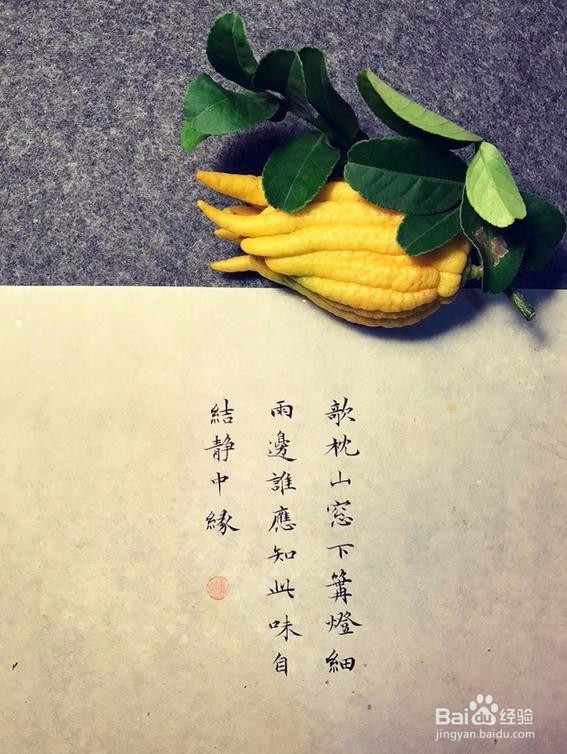 欹枕山窓下篝燈細
雨邊誰應知此味自
結静中緣
Baidu经验
jingyan.baidu.com